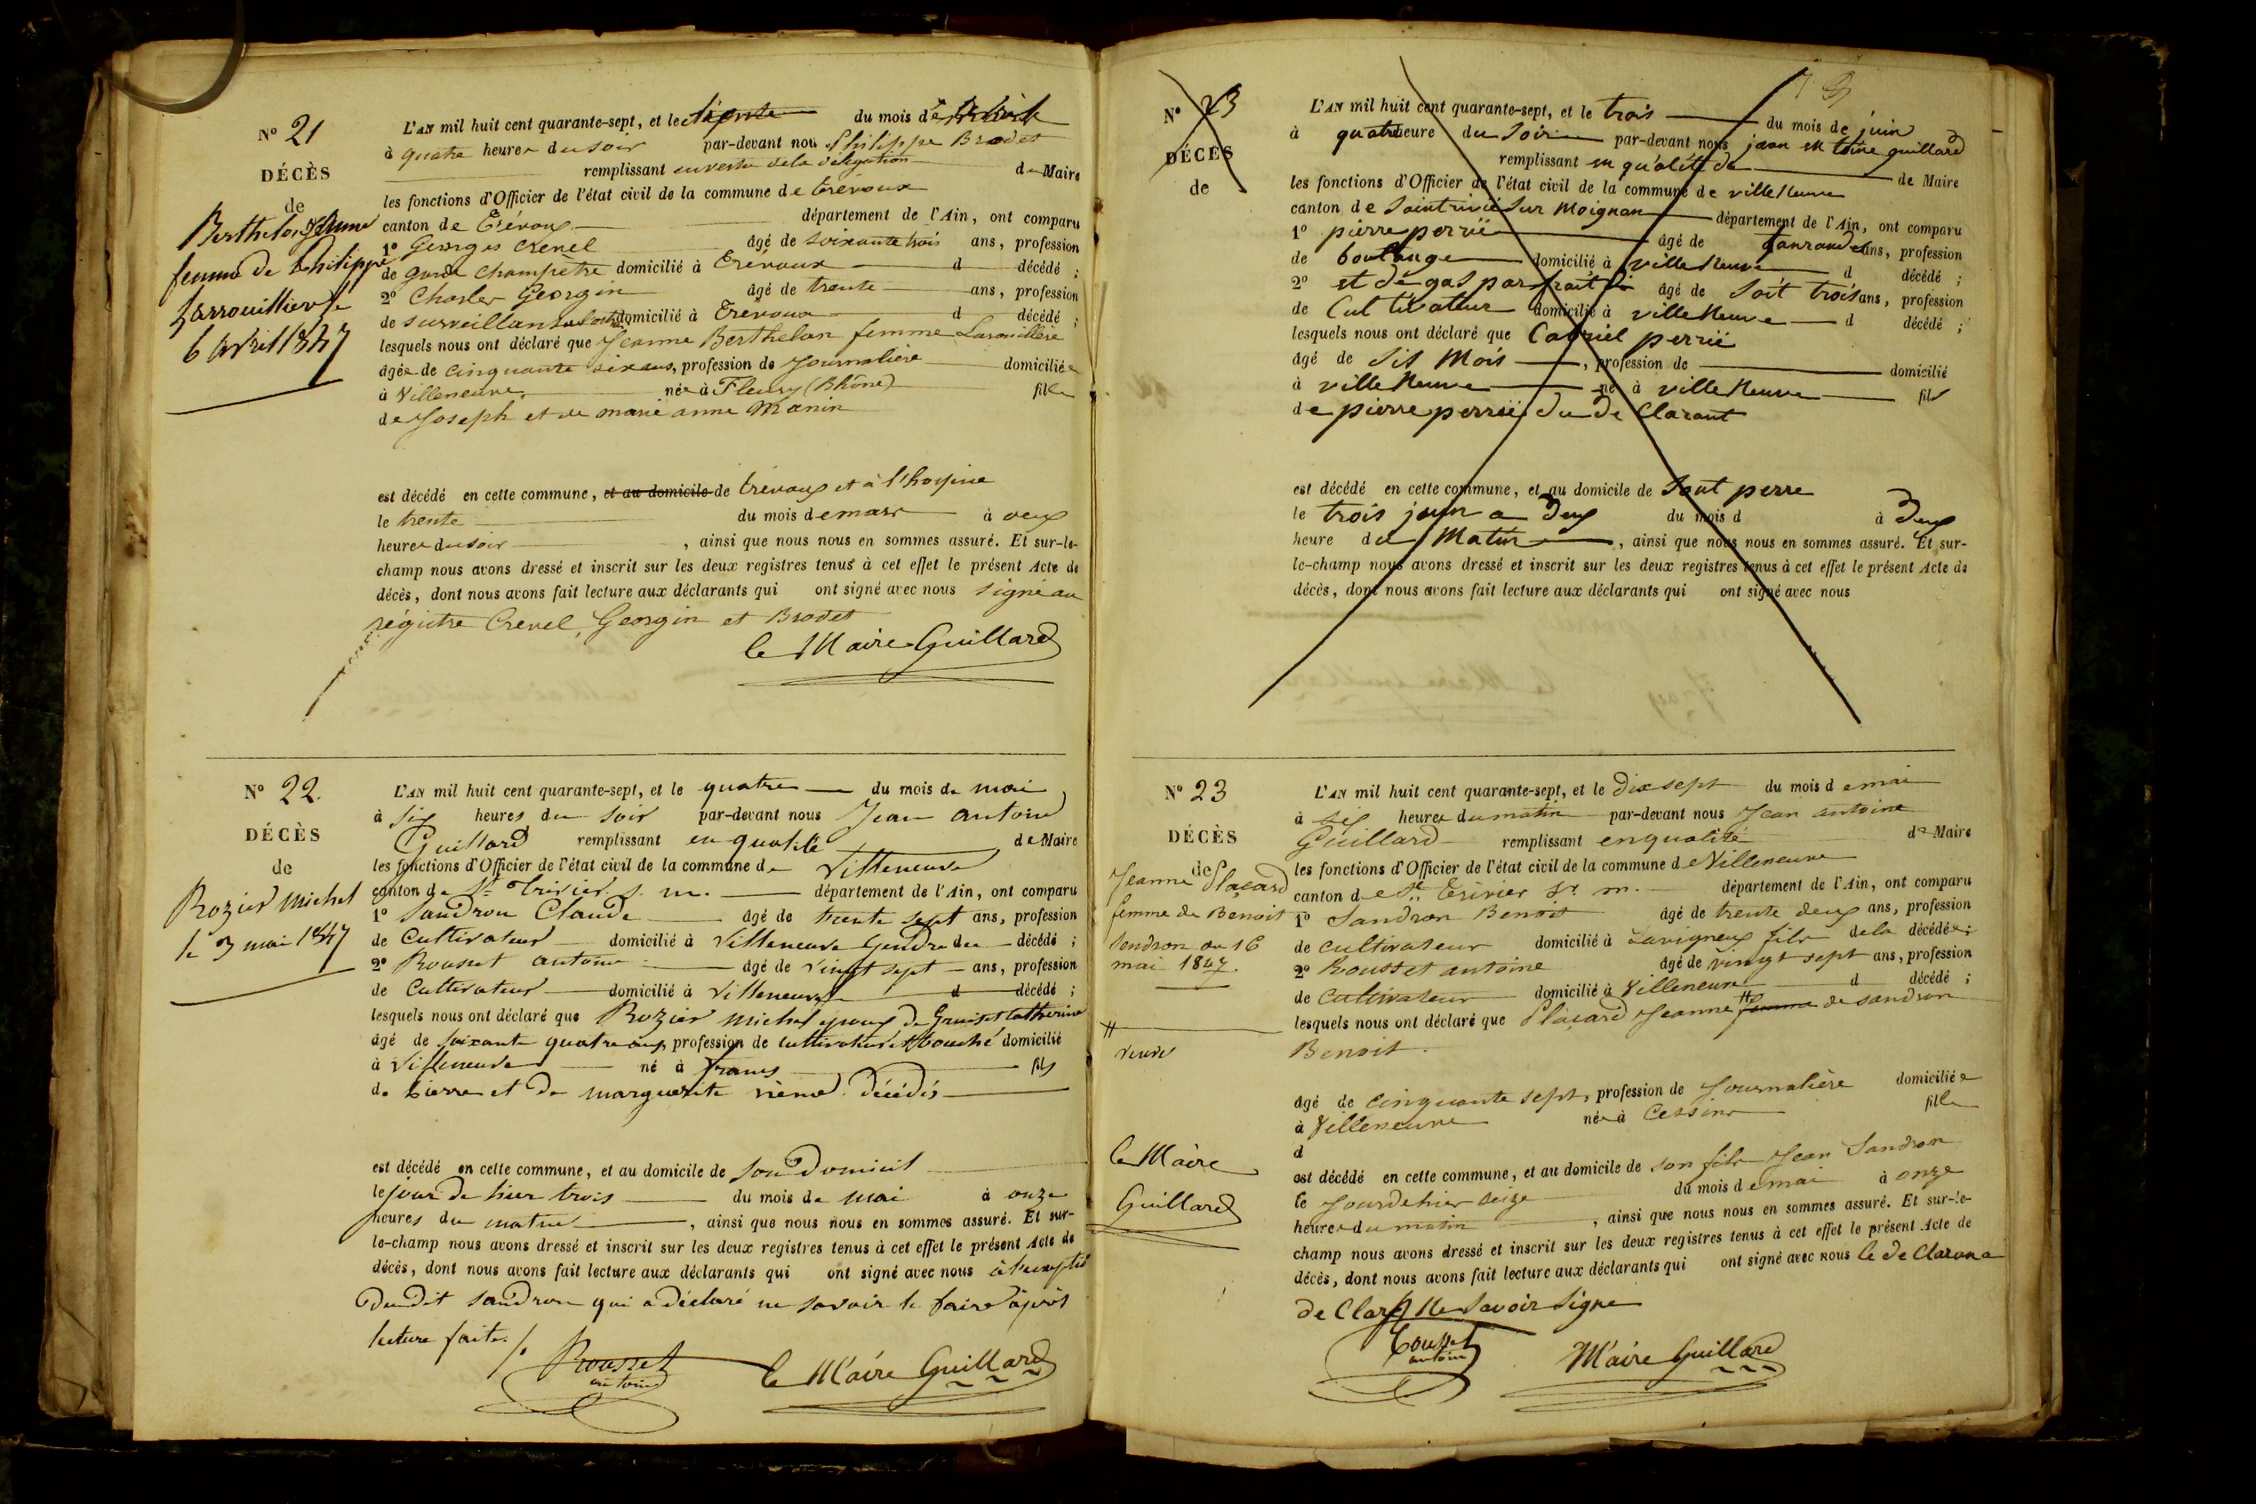 N° 21
DÉCÈS
de
Berthelon Jeanne
femme de Philippe
Larrouillière le
6 avril 1847
L'AN mil huit cent quarante-sept, et le du mois de
à quatre heures du soir par-devant nous Philippe Brodet
remplissant en vertu de la délégation de Maire
les fonctions d'Officier de l'état civil de la commune de trévoux
canton de Trévoux département de l'Ain, ont comparu
1° Georges Crenel âgé de soixante trois ans, profession
de garde champêtre domicilié à Trévoux d décédé ;
2° Charles Georgin âgé de trente ans, profession
de surveillant domicilié à Trévoux d décédé ;
lesquels nous ont déclaré que Jeanne Berthelon femme Larouillière
âgée de cinquante six ans, profession de Journalière domiciliée
à Villeneuve née à Fleury (Rhône) fille
de Joseph et de marie anne Manin
est décédé en cette commune, et au domicile de trévoux et à l'hospice
le trente du mois de mars à deux
heures du soir , ainsi que nous nous en sommes assuré. Et sur-le-
champ nous avons dressé et inscrit sur les deux registres tenus à cet effet le présent Acte de
décès, dont nous avons fait lecture aux déclarants qui ont signé avec nous signé au
régistre Crenel, Georgin et Brodet
le Maire Guillard
N° 22.
DÉCÈS
de
Rozier Michel
le 3 mai 1847
L'AN mil huit cent quarante-sept, et le quatre du mois de mai
à six heures du soir par-devant nous Jean antoine
Guillard remplissant en qualité de Maire
les fonctions d'Officier de l'état civil de la commune de Villeneuve
canton de St Trivier s. m. département de l'Ain, ont comparu
1° Sandron Claude âgé de trente sept ans, profession
de Cultivateur domicilié à Villeneuve Gendre du décédé ;
2° Rousset antoine âgé de vingt sept ans, profession
de Cultivateur domicilié à Villeneuve d décédé ;
lesquels nous ont déclaré que Rozier Michel époux de Gruiset Catherine
âgé de soixante quatre ans, profession de cultivateur domicilié
à Villeneuve né à frans fils
de Pierre et de marguerite décédés
est décédé en cette commune, et au domicile de son Domicil
le jour de hier trois du mois de mai à onze
heures du matin , ainsi que nous nous en sommes assuré. Et sur-
le-champ nous avons dressé et inscrit sur les deux registres tenus à cet effet le présent Acte de
décès, dont nous avons fait lecture aux déclarants qui ont signé avec nous à l'exeptio
Du dit Sandron qui a déclaré ne savoir le faire après
lecture faite./.
Rousset
antoine
le Maire Guillard
N° 23
DÉCÈS
de
L'AN mil huit cent quarante-sept, et le trois du mois de juin
à quatre heure du soir par-devant nous jean en toine guillard
remplissant en qualité de de Maire
les fonctions d'Officier de l'état civil de la commune de ville neuve
canton de Saintrivié sur Moignan département de l'Ain, ont comparu
1° pierre perrié âgé de ans, profession
de boulange domicilié à ville neuve d décédé ;
2° et dégas parfrait âgé de soit trois ans, profession
de Cultivateur domicilié à ville neuve d décédé ;
lesquels nous ont déclaré que Cabriel perrié
âgé de sis mois , profession de domicilié
à ville neuve né à ville neuve fils
de pierre perrié du de Clarant
est décédé en cette commune, et au domicile de sont perre
le trois juin a deux du mois d à deux
heure du Matin , ainsi que nous nous en sommes assuré. Et sur-
le-champ nous avons dressé et inscrit sur les deux registres tenus à cet effet le présent Acte de
décès, dont nous avons fait lecture aux déclarants qui ont signé avec nous
N° 23
DÉCÈS
de
Jeanne Plaçard
femme de Benoit
Sandron du 16
mai 1847.
veuve
le Maire
Guillard
L'AN mil huit cent quarante-sept, et le dix sept du mois de mai
à six heures du matin par-devant nous Jean antoine
Guillard remplissant en qualité de Maire
les fonctions d'Officier de l'état civil de la commune de Villeneuve
canton de St Trivier sr m. département de l'Ain, ont comparu
1° Sandron Benoit âgé de trente deux ans, profession
de cultivateur domicilié à Savigneux fils de la décédée ;
2° Rousset antoine âgé de vingt sept ans, profession
de cultivateur domicilié à Villeneuve d décédé ;
lesquels nous ont déclaré que Plaçard Jeanne femme de Sandron
Benoit.
âgé de cinquante sept, profession de Journalière domiciliée
à Villeneuve née à fille
d
est décédé en cette commune, et au domicile de son fils Jean Sandron
le Jour de hier seize du mois de mai à onze
heures du matin , ainsi que nous nous en sommes assuré. Et sur-le-
champ nous avons dressé et inscrit sur les deux registres tenus à cet effet le présent Acte de
décès, dont nous avons fait lecture aux déclarants qui ont signé avec nous le de Claran a
de Claré ne savoir signe
Rousset
antoine
Maire Guillard